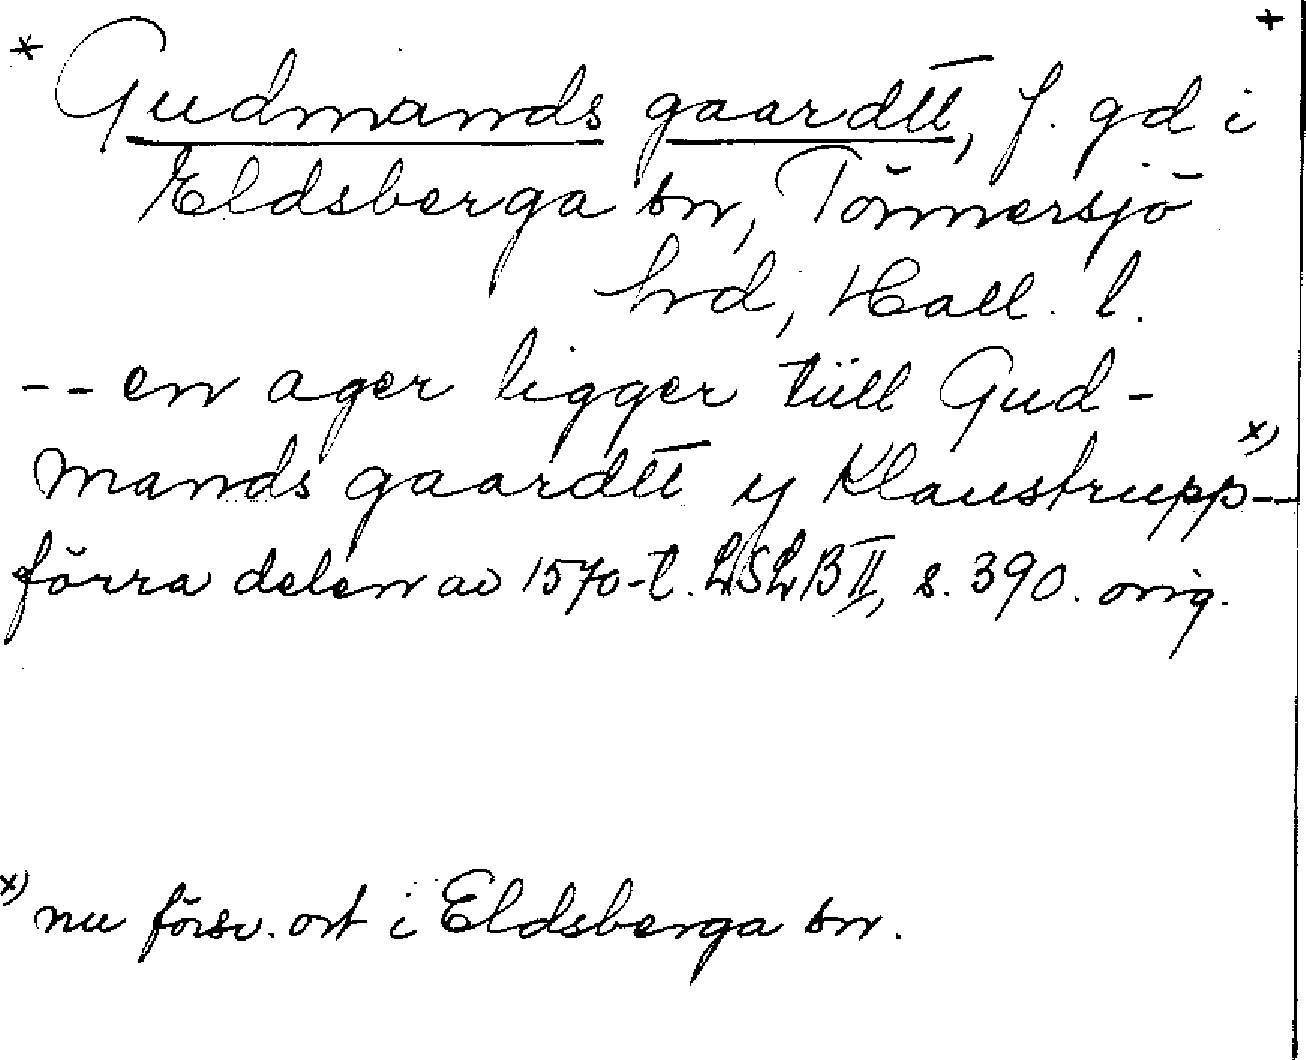 * Gudmands gaardtt, f. gd i +
Eldsberga sn, Tönnersjö
hrd, Hall. l.
-- en ager ligger tüll Gud-
mands gaardtt y Klaustrupp x) --
förra delen av 1570-t. LSLB II, s. 390. orig.
x) nu försv. ort i Eldsberga sn.